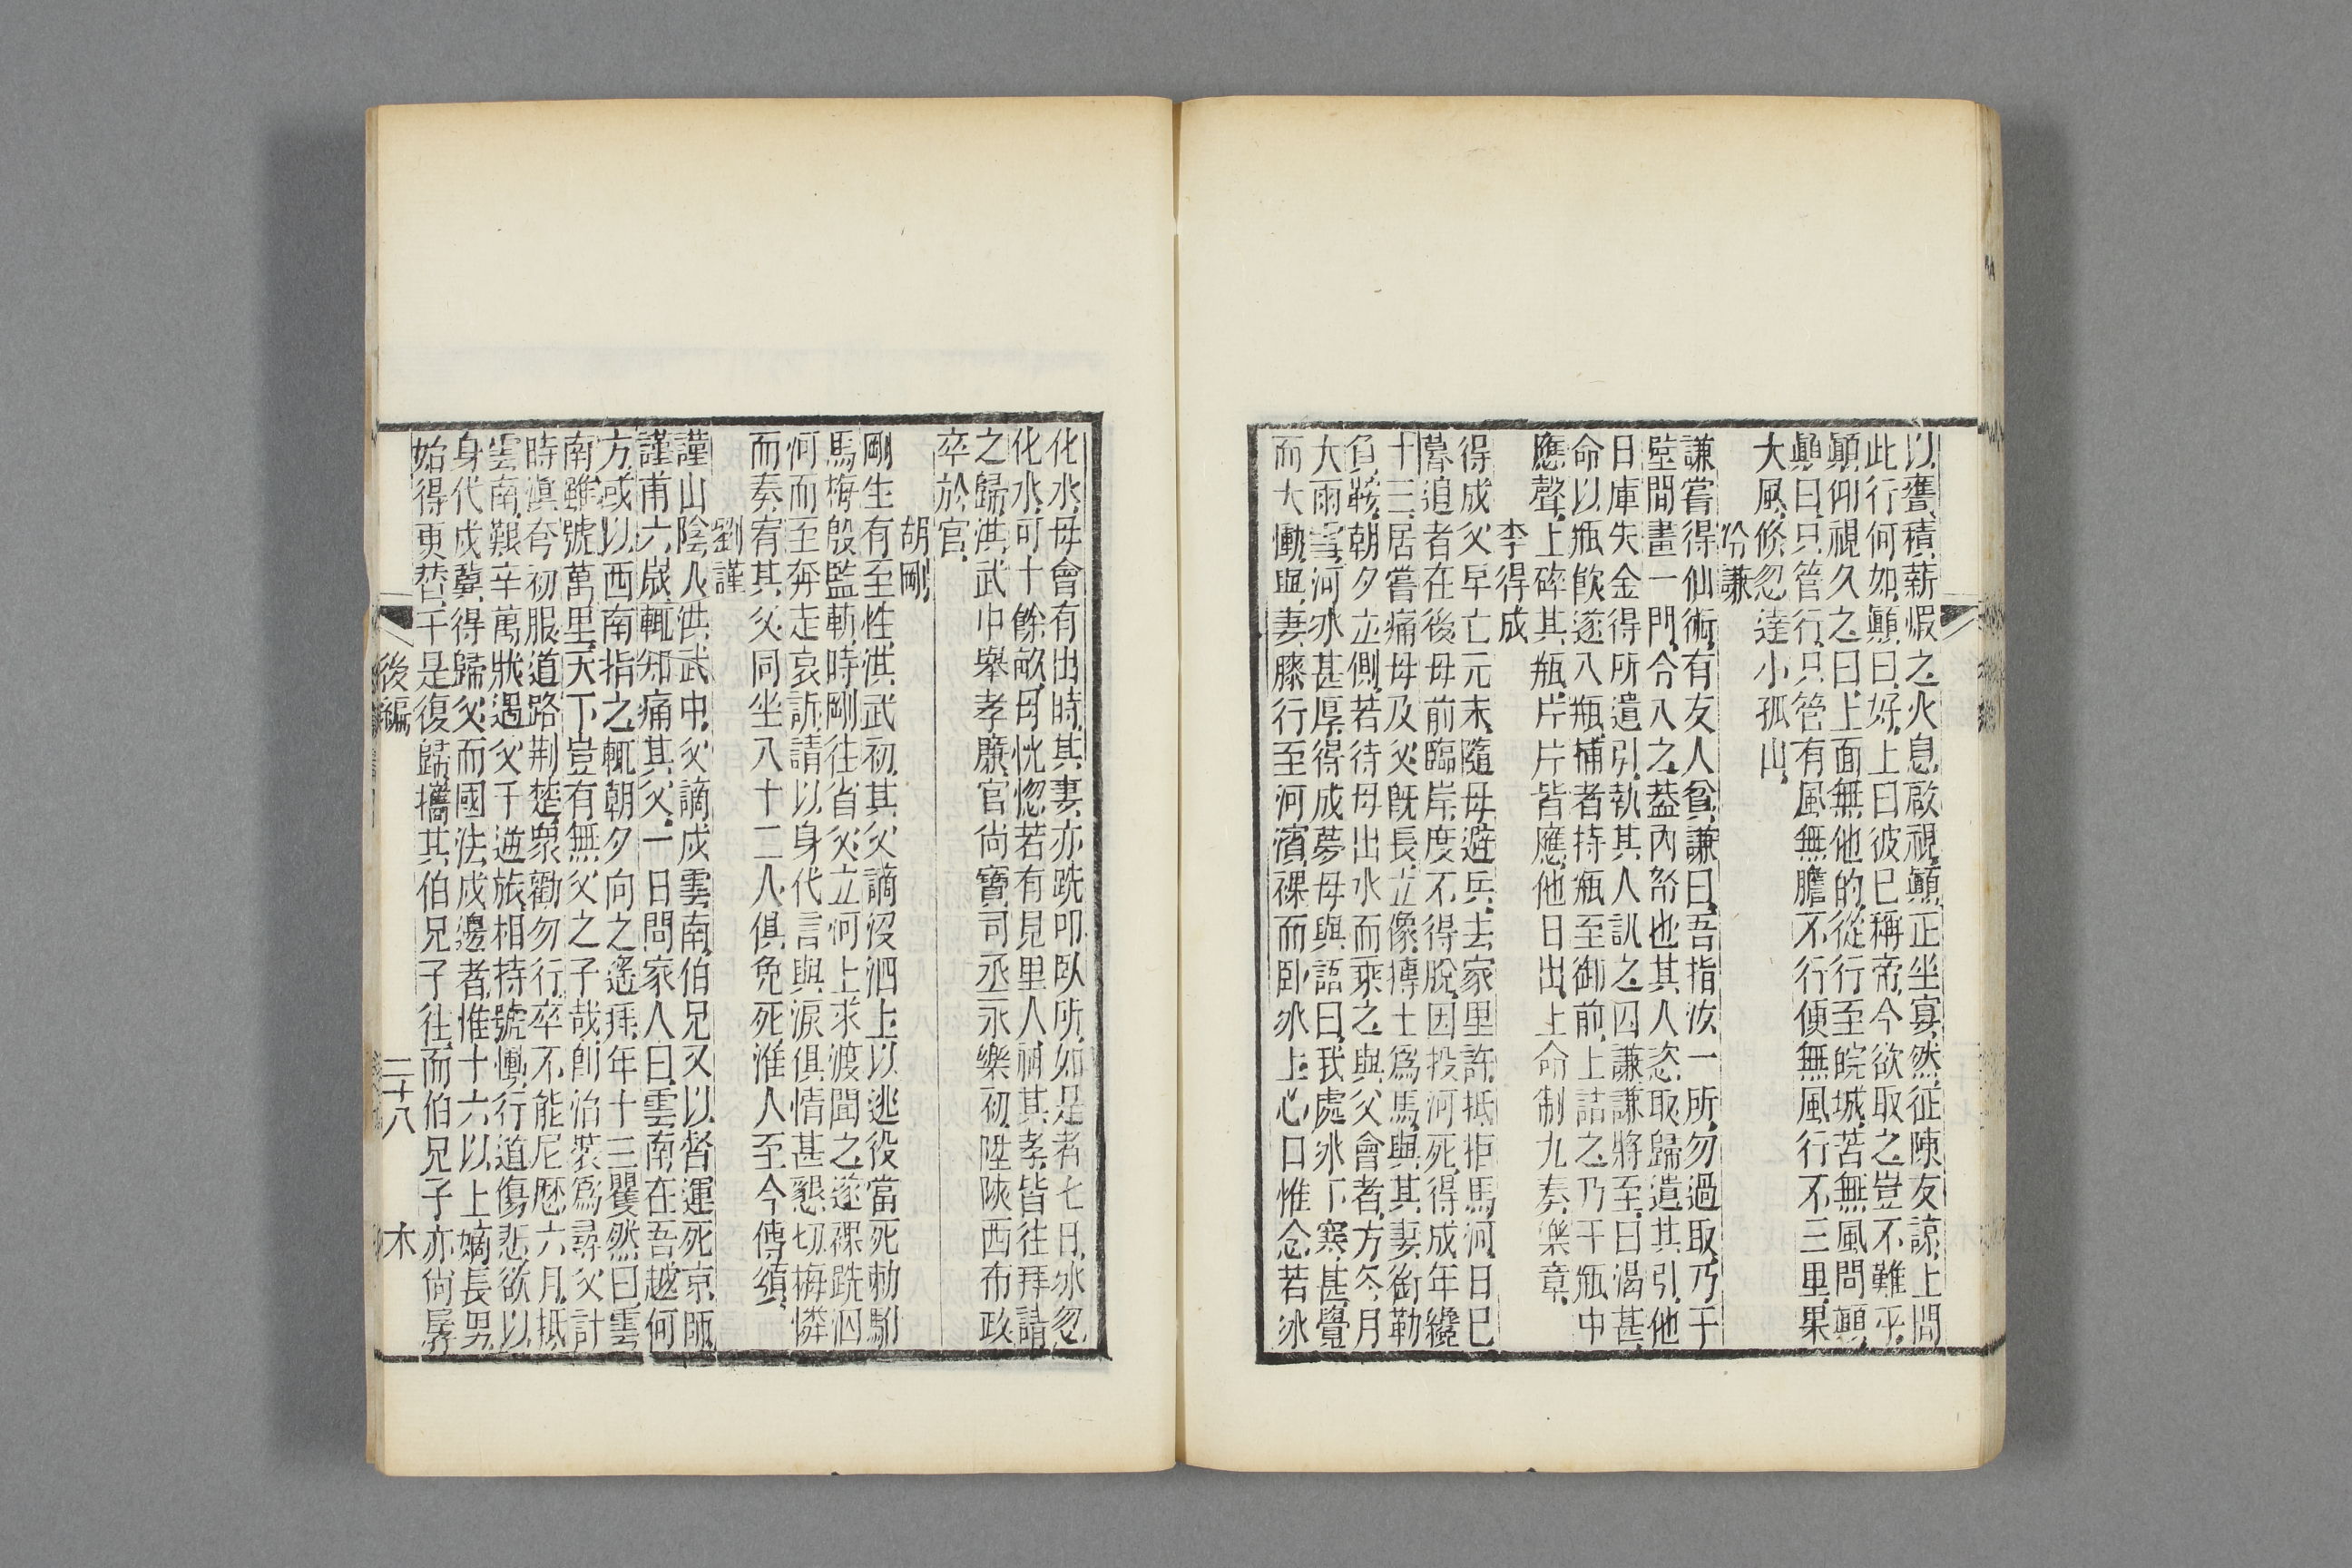 以甕積薪煆之火息啟視顛正坐寞然征陳友諒上問
此行何如顛曰好上曰彼巳稱帝今欲取之豈不難乎
顛仰視久之曰上面無他的從行至皖城苦無風問顛
顛曰只管行只管有風無膽不行便無風行不三里果
大風倏忽達小孤山
冷謙
謙嘗得仙術有友人貧謙曰吾指汝一所勿過取乃于
壁間畫一門令入之葢內帑也其人恣取歸遺其引他
日庫失金得所遺引執其人訊之囚謙謙將至曰渴甚
命以瓶飲遂入瓶捕者持瓶至御前上詰之乃于瓶中
應聲上碎其瓶片片皆應他日出上命制九奏樂章
李得成
得成父早亡元末隨母避兵去家里許抵拒馬河日巳
暮追者在後母前臨岸度不得脫因投河死得成年纔
十三居嘗痛母及父旣長立像摶土爲馬與其妻銜勒
負鞍朝夕立側若待母出水而乘之與父會者方冬月
大雨雪河冰甚厚得成夢母與語曰我處冰下寒甚覺
而大慟與妻膝行至河濱裸而卧冰上心口惟念若冰
化水母會有出時其妻亦跣叩臥所如是者七日冰忽
化水可十餘畝母恍惚若有見里人禎其孝皆往拜請
之歸洪武中舉孝廉官尚寶司丞永樂初陞陜西布政
卒於官
胡剛
剛生有至性洪武初其父謫沒泗上以逃役當死勅駙
馬梅殷監斬時剛往省父立河上求渡聞之遂裸跣泅
河而至奔走哀訴請以身代言與淚俱情甚懇切梅憐
而奏宥其父同坐八十二人俱免死淮人至今傳頌
劉謹
謹山陰人洪武中父謫戍雲南伯兄又以督運死京師
謹甫六歲輒知痛其父一日問家人曰雲南在吾越何
方或以西南指之輒朝夕向之遙拜年十三矍然曰雲
南雖號萬里天下豈有無父之子哉卽治裝爲尋父計
時滇夸初服道路荆楚衆勸勿行卒不能尼歷六月抵
雲南艱辛萬狀遇父于逆旅相持號慟行道傷悲欲以
身代戍冀得歸父而國法戍邊者惟十六以上嫡長男
始得更替于是復歸攜其伯兄子往而伯兄子亦尚孱
後編 二十八 木